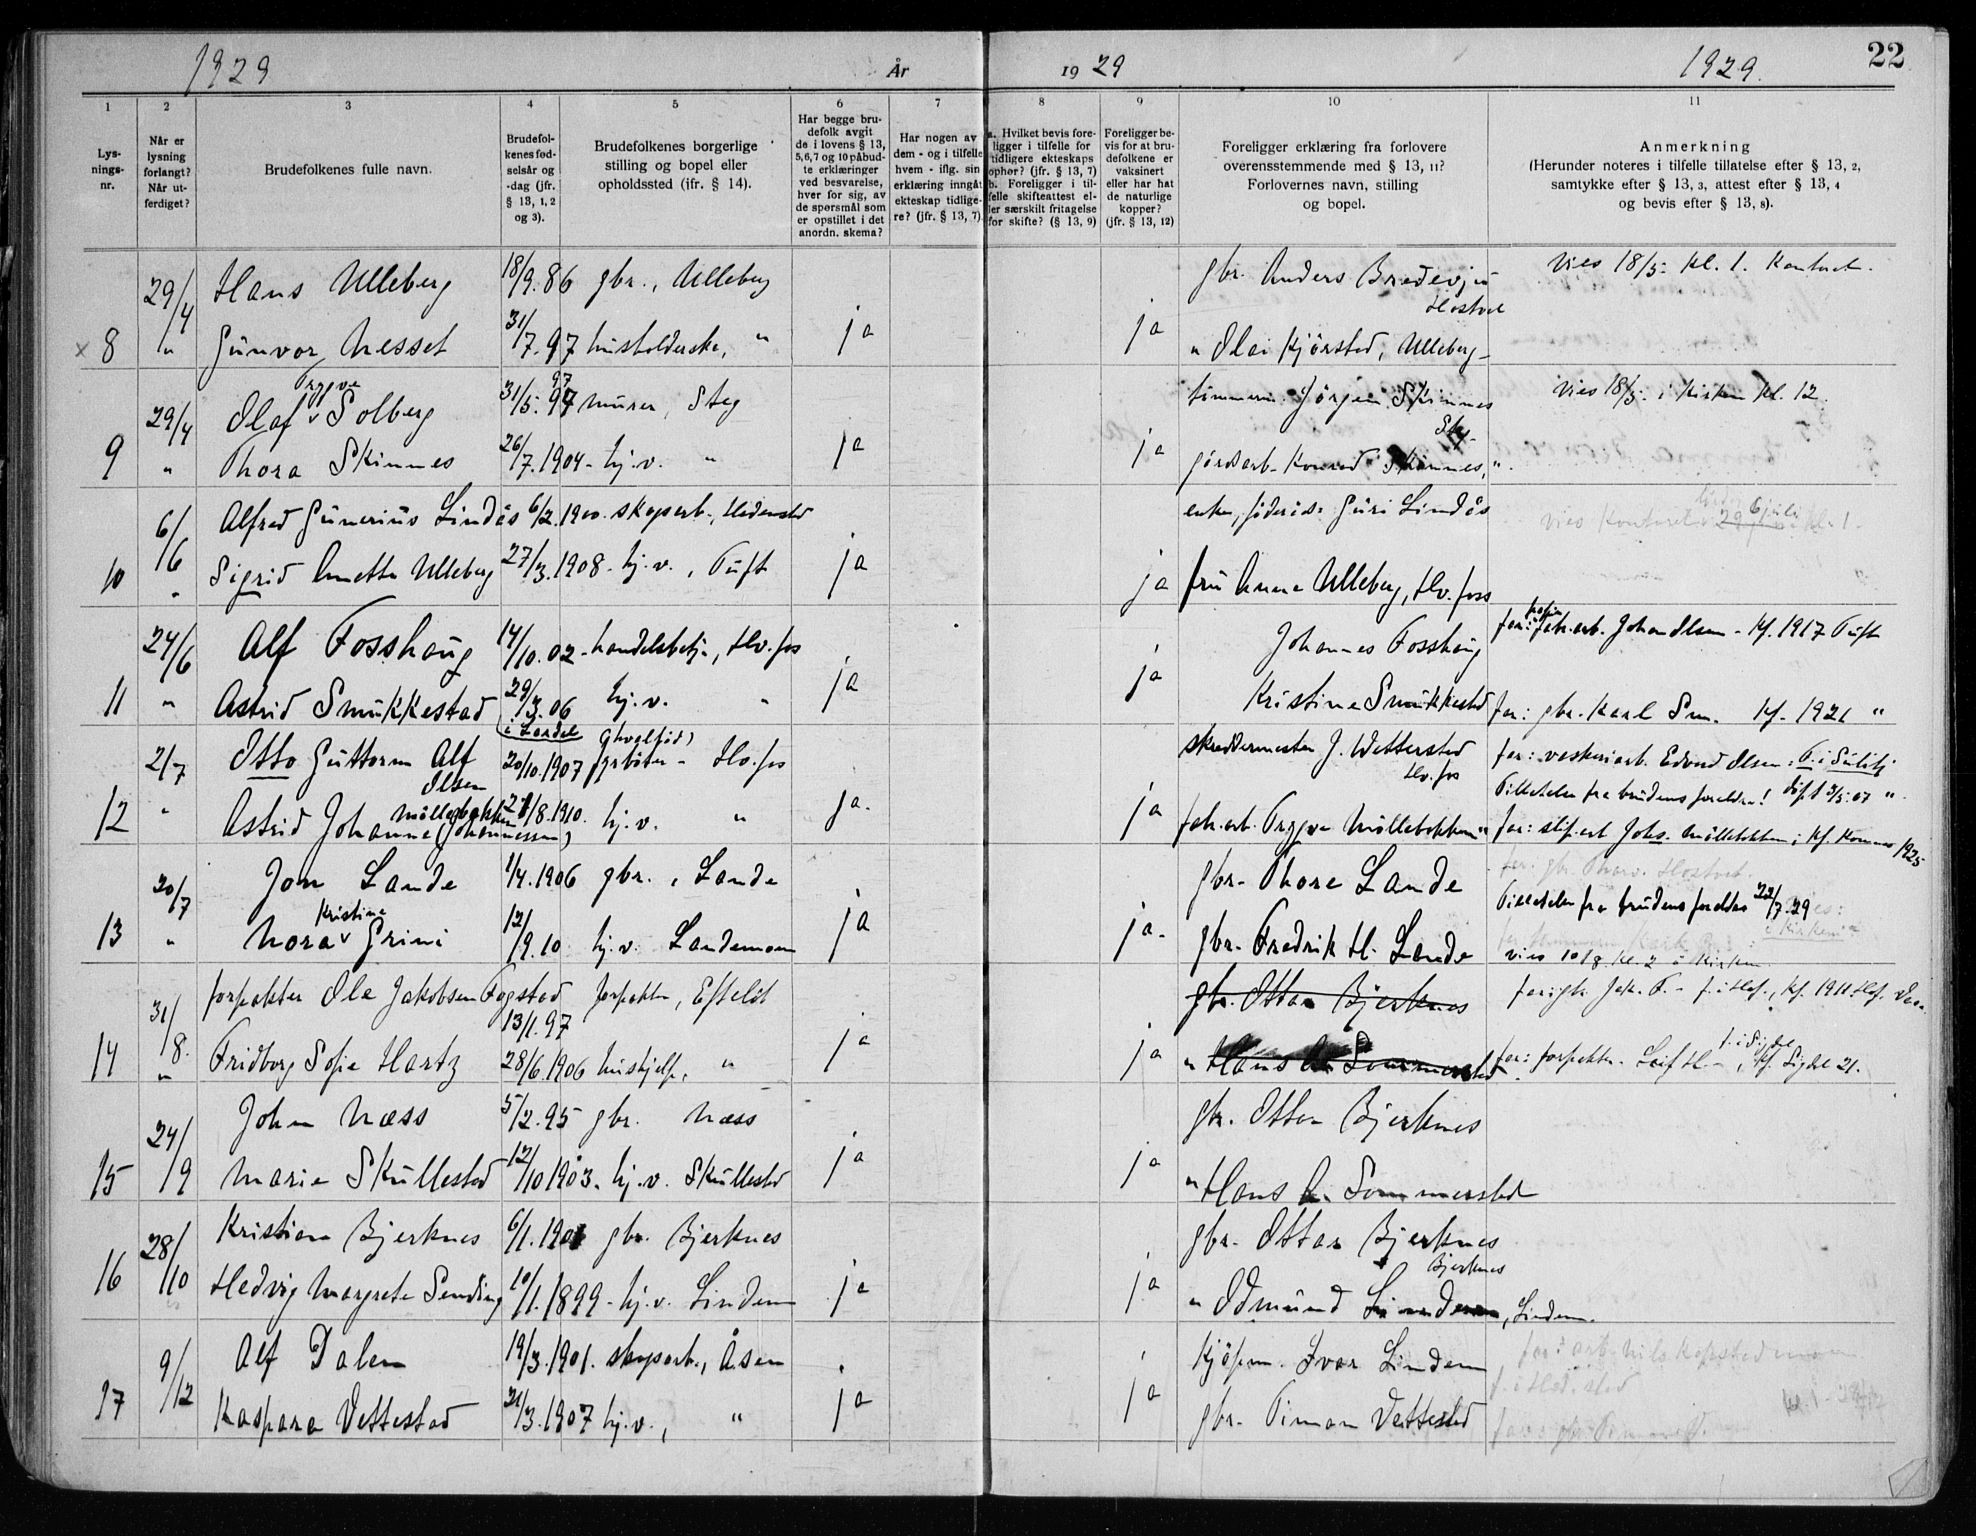 1929 År 19 29 1929. 22
1 2 3 4 5 6 7 8 9 10 11
Lysningsnr.
Når er lysning forlangt? Når utferdiget?
Brudefolkenes fulle navn.
Brudefolkenes fødselsår og -dag (jfr. § 13, 1, 2 og 3).
Brudefolkenes borgerlige stilling og bopel eller opholdssted (ifr. § 14).
Har begge brudefolk avgit de i lovens § 13, 5, 6, 7 og 10 påbudte erklæringer ved besvarelse, hver for sig, av de spørsmål som er opstillet i det anordn. skema?
Har nogen av dem - og i tilfelle hvem - iflg. sin erklæring inngåt ekteskap tidligere? (jfr. § 13, 7).
a. Hvilket bevis foreligger i tilfelle for tidligere ekteskaps ophør? (jfr. § 13, 7) b. Foreligger i tilfelle skifteattest eller særskilt fritagelse for skifte? (§ 13, 9)
Foreligger bevis for at brudefolkene er vaksinert eller har hat de naturlige kopper? (jfr. § 13, 12)
Foreligger erklæring fra forlovere overensstemmende med § 13, 11? Forlovernes navn, stilling og bopel.
Anmerkning (Herunder noteres i tilfelle tillatelse efter § 13, 2, samtykke efter § 13, 3, attest efter § 13, 4 og bevis efter § 13, 8).
29/4 Hans Ulleberg 18/9.86 gbr., Ulleberg gbr. Anders Bredevju Hostvet vies 18/5 kl. 1. Kontoret.
x 8 " Gunvor Nesset 31/7.97 husholderske, " ja ja " Olai Kjørstad, Ulleberg
29/4 Olaf Trygve Solberg 31/5.97 97 murer, Steg timmerm. Jörgen Skinnes vies 18/5. i kirken kl. 12.
9 " Thora Skinnes 26/7.1904 - hj.v. " ja ja gårdsarb. Konrad Skinnes, "
6/6 Alfred Gunerius Lindås 6/2.1900. skogarb., Hedenstad enke, föderåd: Guri Lindås vies Kontoret 29/6 6 juli kl. 1.
10 " Sigrid Anette Ulleberg 27/3.1908 - hj.v., Tuft ja ja fru Anna Ulleberg, Hv.foss
24/6 Alf Fosshaug 14/10.02 - handelsbetj., Hv.fos Johannes Fosshaug far: fabr.arb. Johan Olsen - kf. 1917 Tuft
11 " Astrid Smukkestad 29/3.06 hj.v. " ja ja Kristine Smukkestad far: gbr. Karl Sm. kf. 1921 "
2/7 Otto Guttorm Alf Olsen 20/10.1907 fyrböter - Hv.fos skreddermester J. Wetterstad Hv.fos far: vaskeriarb. Edvard Olsen:
12 " Astrid Johanne Möllerbakken (Johannessen) /8.1910. hj.v. " ja. ja fabr.arb. Trygve Möllebakken " Tillatelse fra brudens foreldre!
1925
20/7 Jon Lande 1/4.1906 gbr., Lande gbr. Thore Lande far: gbr. Thorv. Hostvet.
13 " Nora Kristine Grini 12/9.10 hj.v. Landemoen ja ja. gbr. Fredrik H. Lande Tillatelse fra brudens foreldre 22/7.29
vies 10/8 kl. 2 i kirken
31/8. forpakter Ole Jakobsen Fogstad 13/1.97 forpakter, Efteløt gbr. Ottar Bjerknes
14 " Fridborg Sofie Hartz 28/6.1906 hushjelp, " ja ja " Hans A. Sommerstad far: forpakter Leif H. f. i Sigdal, kf. Sigdal 21.
24/9 John Næss 5/2.95 gbr. Næss gbr. Ottar Bjerknes
15 Marie Skullestad 12/10.1903. hj.v. Skullestad ja ja " Hans A. Sommerstad
28/10 Kristian Bjerknes 6/1.1901 gbr. Bjerknes gbr. Ottar Bjerknes Bjerknes
16 Hedvig Margrete Sending 10/1.1899 - hj.v. Lindem ja ja " Odmund Lindem, Lindem.
9/12 Alf Dalen 19/3.1901. skogarb., Åsen Kjöpm. Ivar Lindem far: arb. Nils Kopstadmoen
17 Kaspara Vettestad 21/3.1907 hj.v., " ja ja gbr. Timan Vettestad